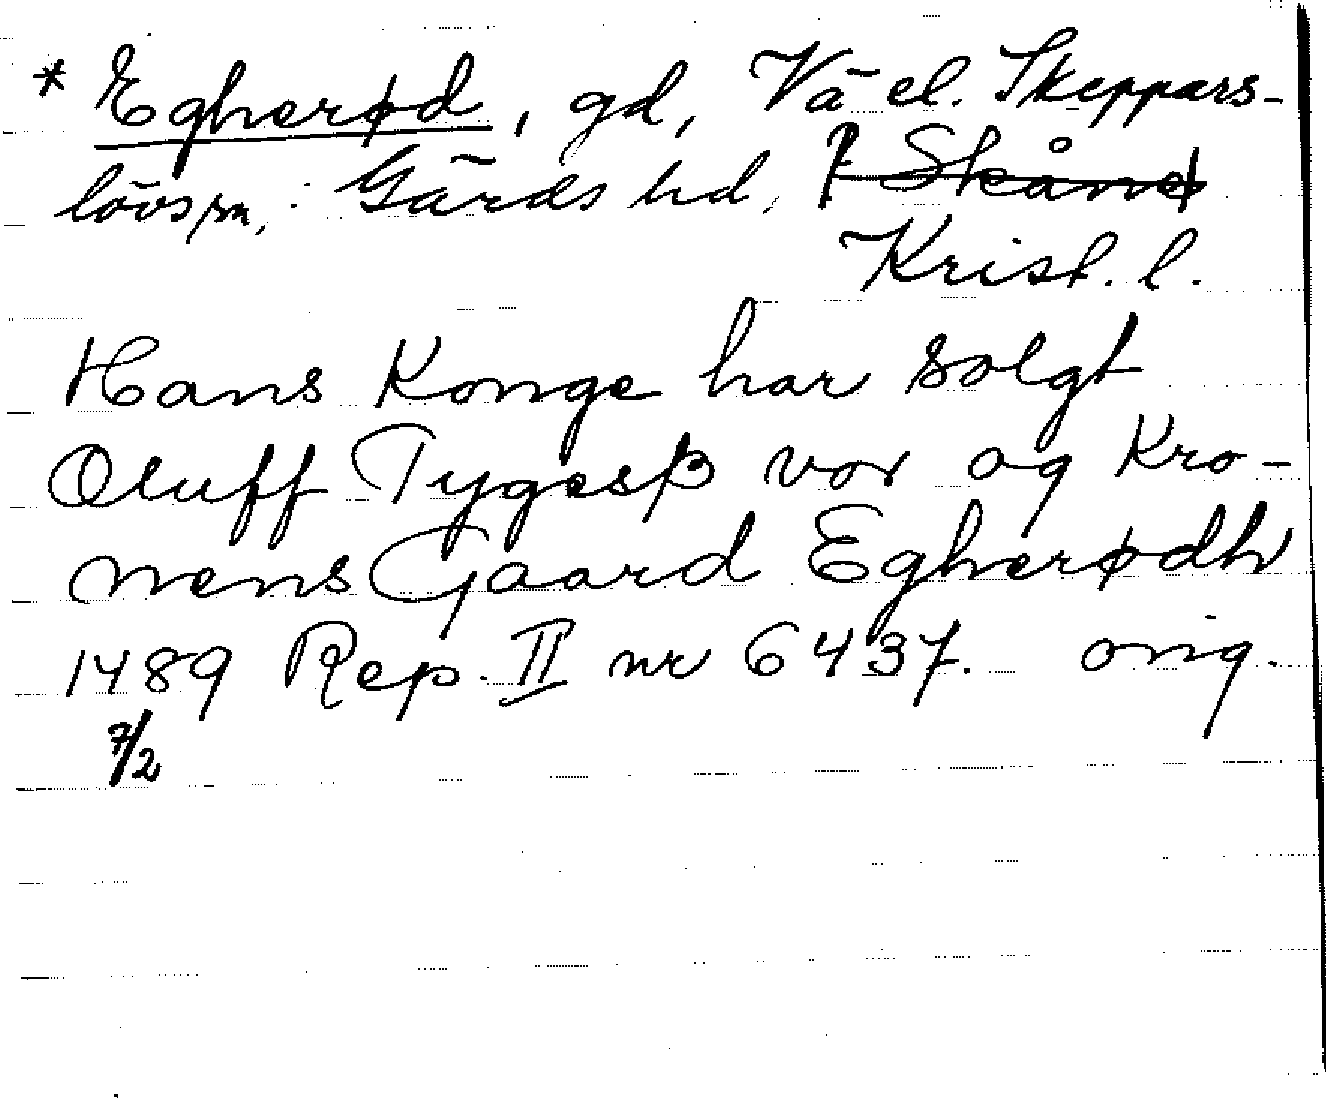 * Egherød, gd, Vä el. Skeppars-
lövs sn, Gärds hd, ~~? Skåne~~
Krist. l.
Hans Konge har solgt
Oluff Tygesß vor og Kro-
nens Gaard Egherødh
1489 Rep. II nr 6437. orig.
7/2